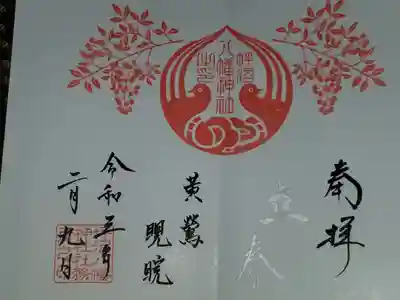 八幡神社
奉拝
立春
黄鶯
睍睆
令和三年
二月九日